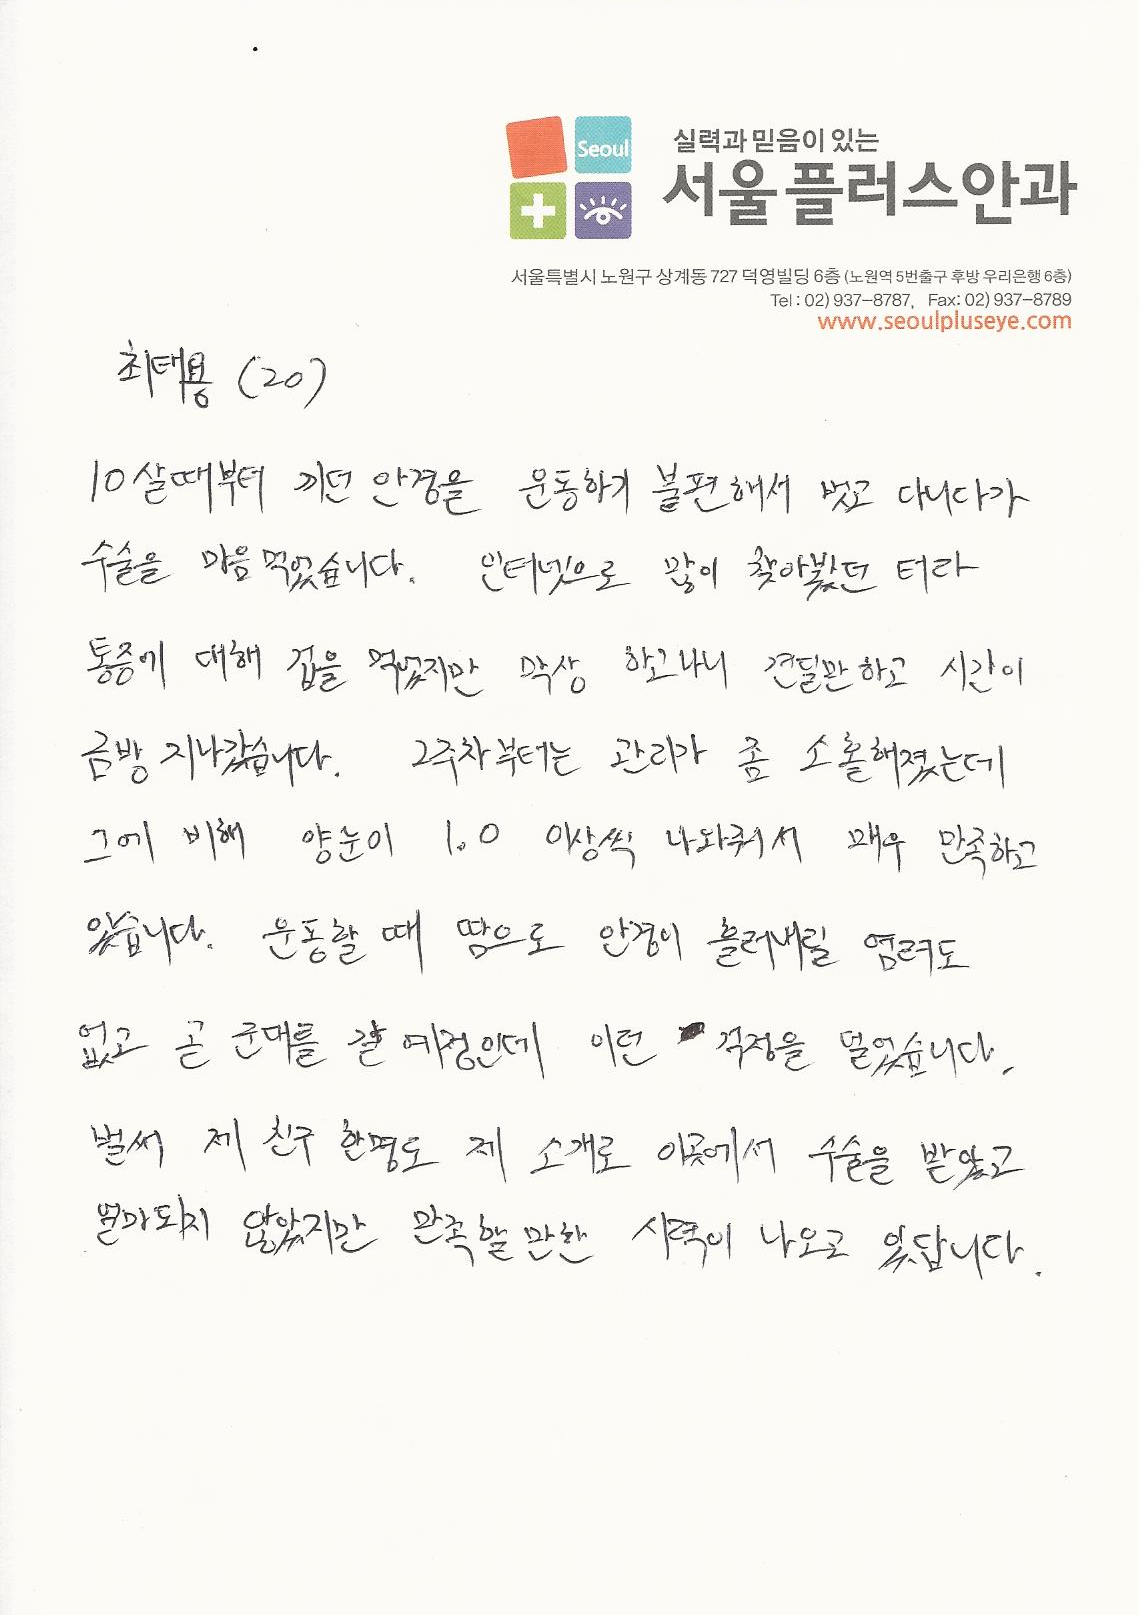 Seoul
실력과 믿음이 있는
서울플러스안과
서울특별시 노원구 상계동 727 덕영빌딩 6층 (노원역 5번출구 후방 우리은행 6층)
Tel : 02) 937-8787, Fax: 02) 937-8789
www.seoulpluseye.com
최태용 (20)
10살때부터 끼던 안경을 운동하기 불편해서 벗고 다니다가
수술을 마음 먹었습니다. 인터넷으로 많이 찾아봤던 터라
통증에 대해 겁을 먹었지만 막상 하고나니 견딜만하고 시간이
금방 지나갔습니다. 2주차부터는 관리가 좀 소홀해졌는데
그에 비해 양눈이 1.0 이상씩 나와줘서 매우 만족하고
있습니다. 운동할 때 땀으로 안경이 흘러내릴 염려도
없고 곧 군대를 갈 예정인데 이런 걱정을 덜었습니다.
벌써 제 친구 한명도 제 소개로 이곳에서 수술을 받았고
얼마되지 않았지만 만족할만한 시력이 나오고 있답니다.